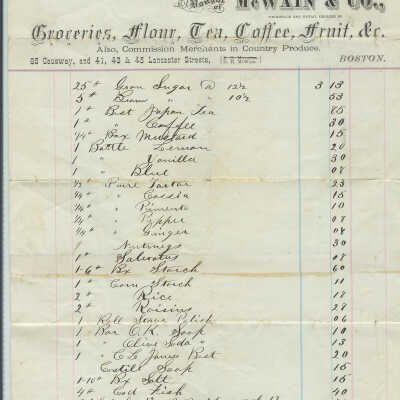 McWAIN & CO.,
WHOLESALE AND RETAIL DEALERS IN
Groceries, Flour, Tea, Coffee, Fruit, &c.
Also, Commission Merchants in Country Produce.
88 Causeway, and 41, 43 & 45 Lancaster Streets, BOSTON.
25 # Gran Sugar @ 12½ 3 13
5 # " " 10½ 53
1 # Best Japan Tea 75
1 " Coffee 30
¼ # Box Mustard 15
1 Bottle Lemon 20
1 " Vanilla 30
1 " Blue 07
½ # Pure Tartar 23
¼ # " Cassia 15
¼ # " Pimento 10
¼ # " Pepper
¼ # " Ginger
1 Nutmegs 30
1 # Salaratus 07
1-6 # Bx Starch 60
1 # Corn Starch 11
2 # Rice 18
2 # Raisins
1 Stove Polish 06
1 Bar O.K. Soap 10
1 " Olive Soda " 13
1 " Best 20
Castill Soap 15
1-10 # Bx Salt 15
4 # Cod Fish 40